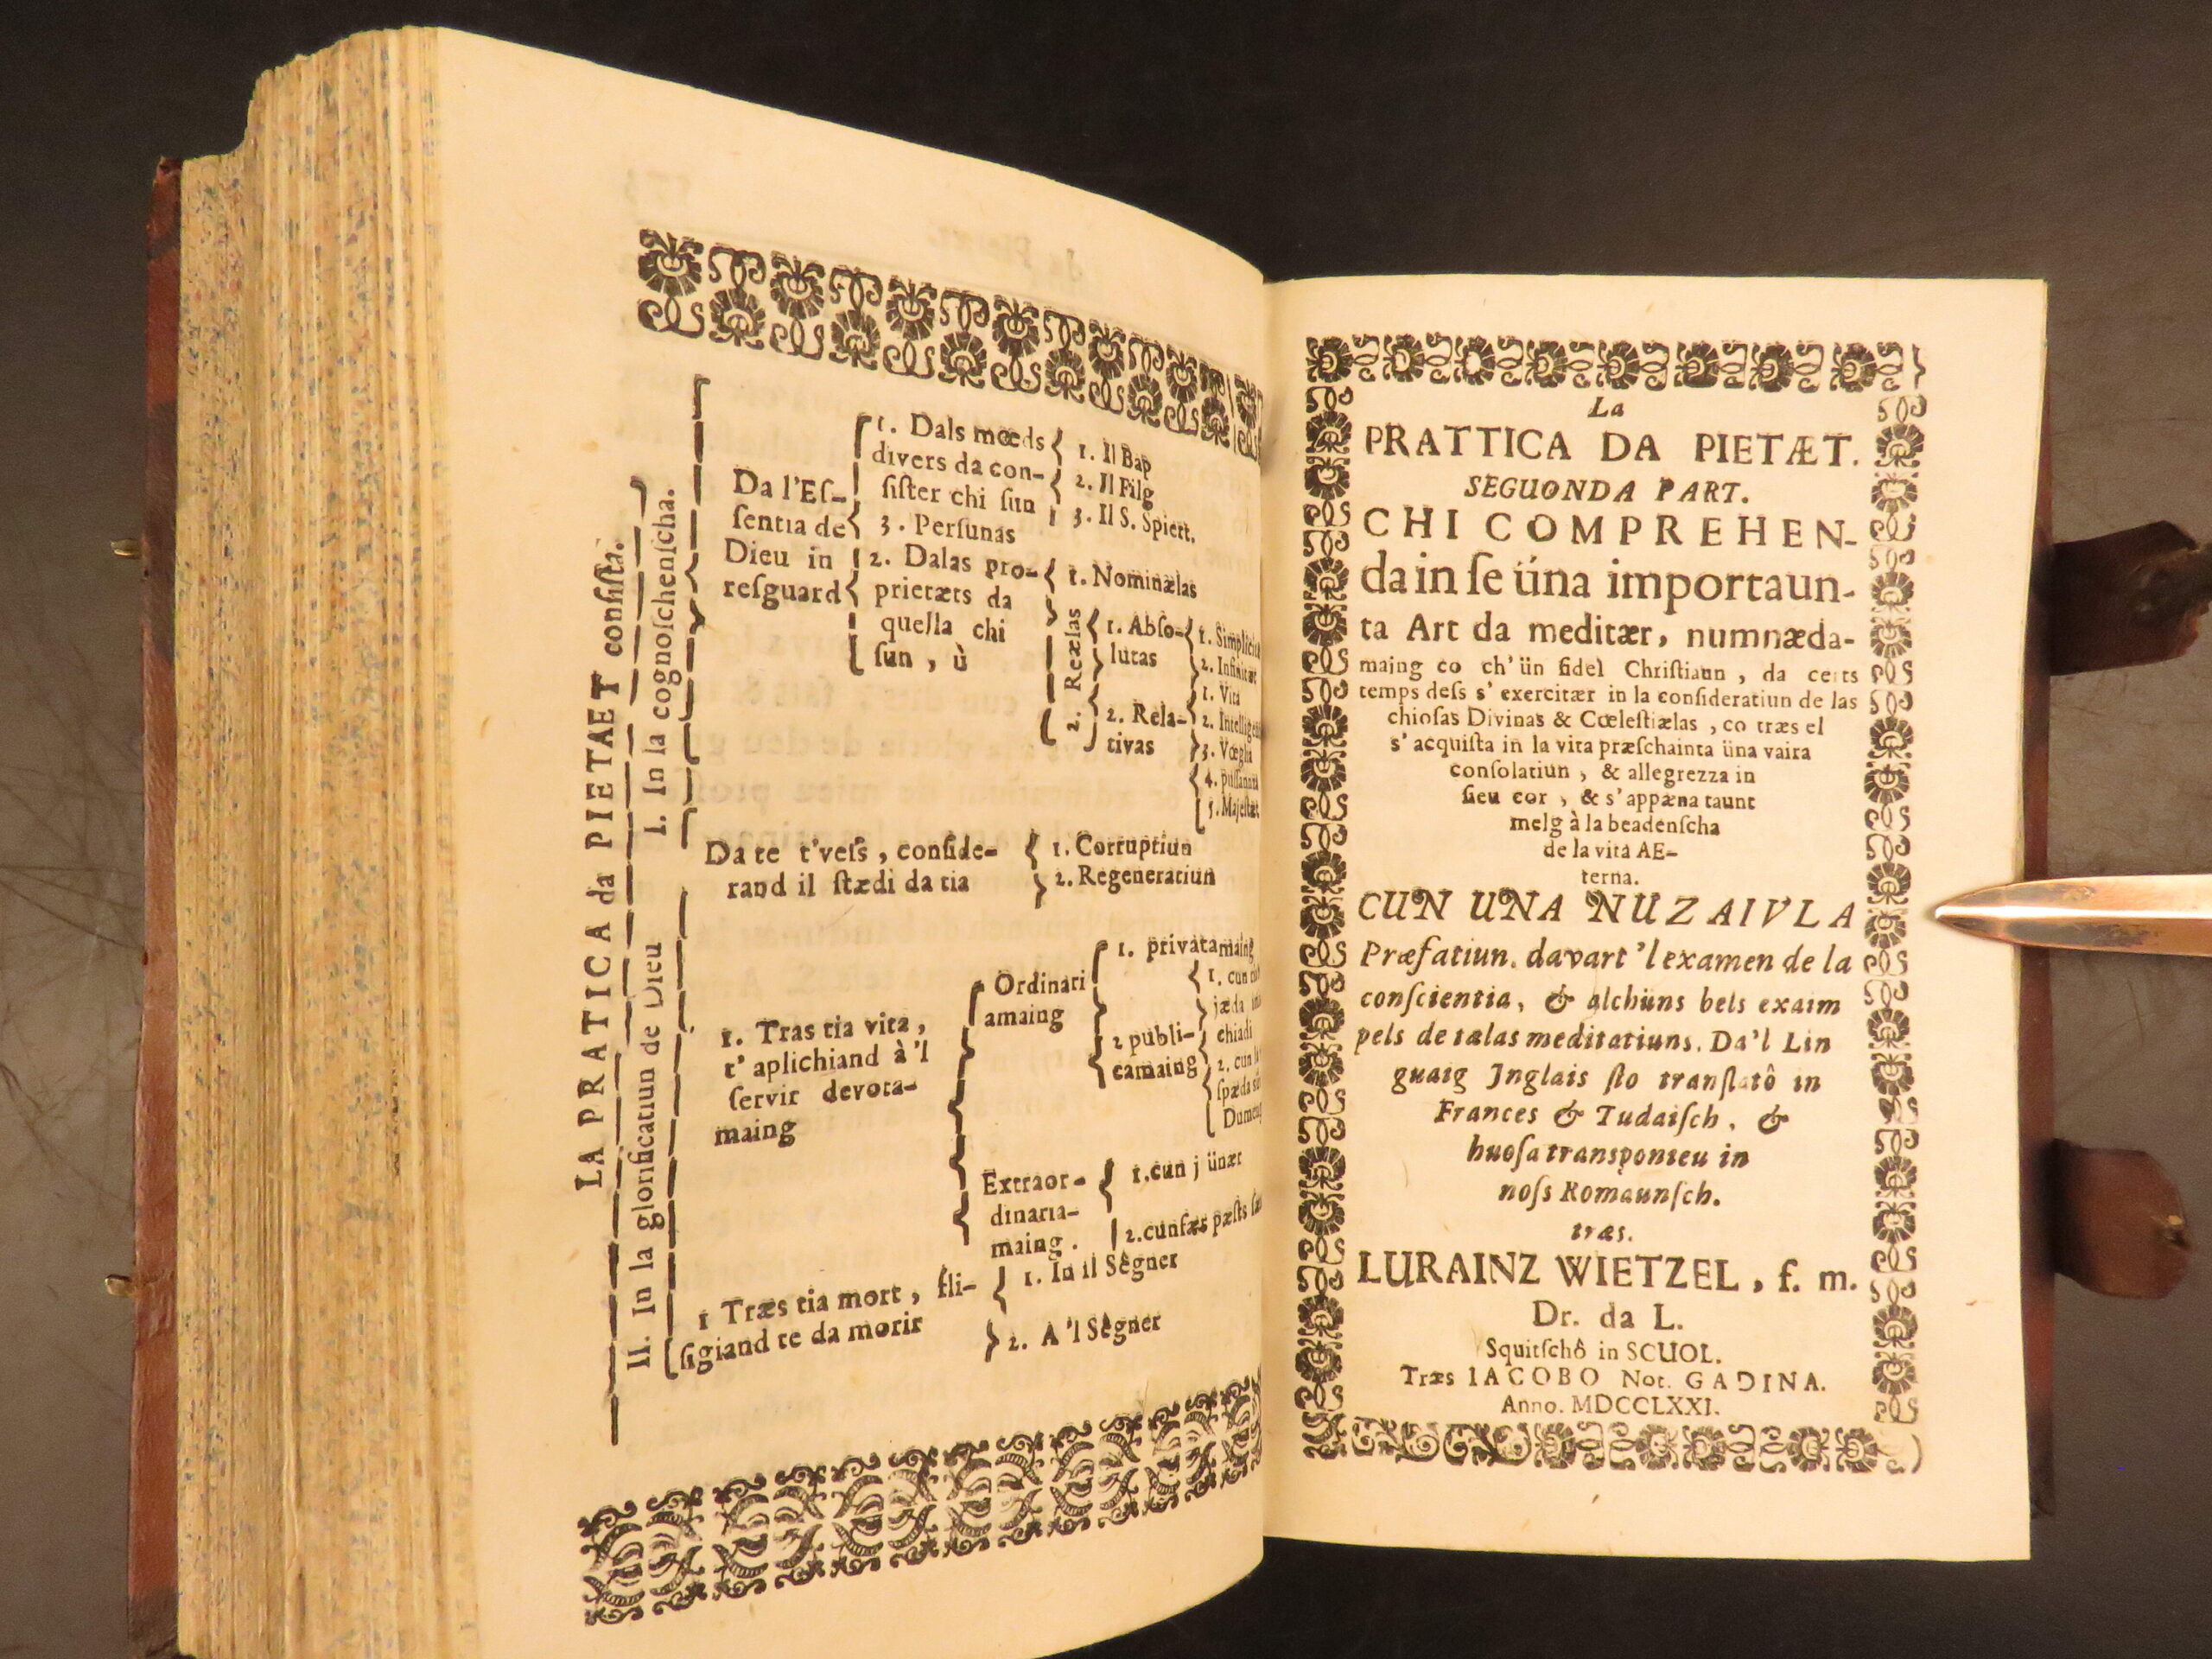 LA PRATICA da PIETAET conſiſta.
I. In la cognoſchenſcha.
Da l'Eſ-
ſentia de
Dieu in
reſguard
1. Dals mœds
divers da con-
ſiſter chi ſun
3. Perſunas
1. Il Bap
2. Il Filg
3. Il S. Spiert.
2. Dalas pro-
prietæts da
quella chi
ſun, ù
1. Nominælas
2. Reælas
1. Abſo-
lutas
1.
2.
2. Rela-
tivas
1. Vita
2.
3. Vœglia
4.
5. Majeſtæt
Da te t'veſs, conſide-
rand il ſtædi da tia
1. Corruptiun
2. Regeneratiun
II. In la glorificatiun de Dieu
1. Tras tia vita,
t' aplichiand à 'l
ſervir devota-
maing
Ordinari
amaing
1. privatamaing
2 publi-
camaing
1. cun
jæda
chiadi
2. cun
ſpæda
Extraor-
dinaria-
maing.
1. cun j ünær
2. cun fær pæſts
1 Træs tia mort, ſli-
ſigiand te da morir
1. In il Sêgner
2. A 'l Sêgner
La
PRATTICA DA PIETÆT.
SEGUONDA PART.
CHI COMPREHEN-
da in ſe üna importaun-
ta Art da meditær, numnæda-
maing co ch'ün fidel Chriſtiaun, da certs
temps deſs s' exercitær in la conſideratiun de las
chioſas Divinas & Cœleſtiælas, co træs el
s' acquiſta in la vita præſchainta üna vaira
conſolatiun, & allegrezza in
ſieu cor, & s'appæna taunt
melg à la beadenſcha
de la vita AE-
terna.
CUN UNA NUZAIVLA
Præfatiun. davart 'l examen de la
conſcientia, & alchüns bels exaim
pels de talas meditatiuns. Da'l Lin
guaig Inglais ſto tranſlatô in
Frances & Tudaiſch, &
huoſa transponieu in
noſs Romaunſch.
træs.
LURAINZ WIETZEL, f. m.
Dr. da L.
Squitſchô in SCUOL.
Træs IACOBO Not. GADINA.
Anno. MDCCLXXI.